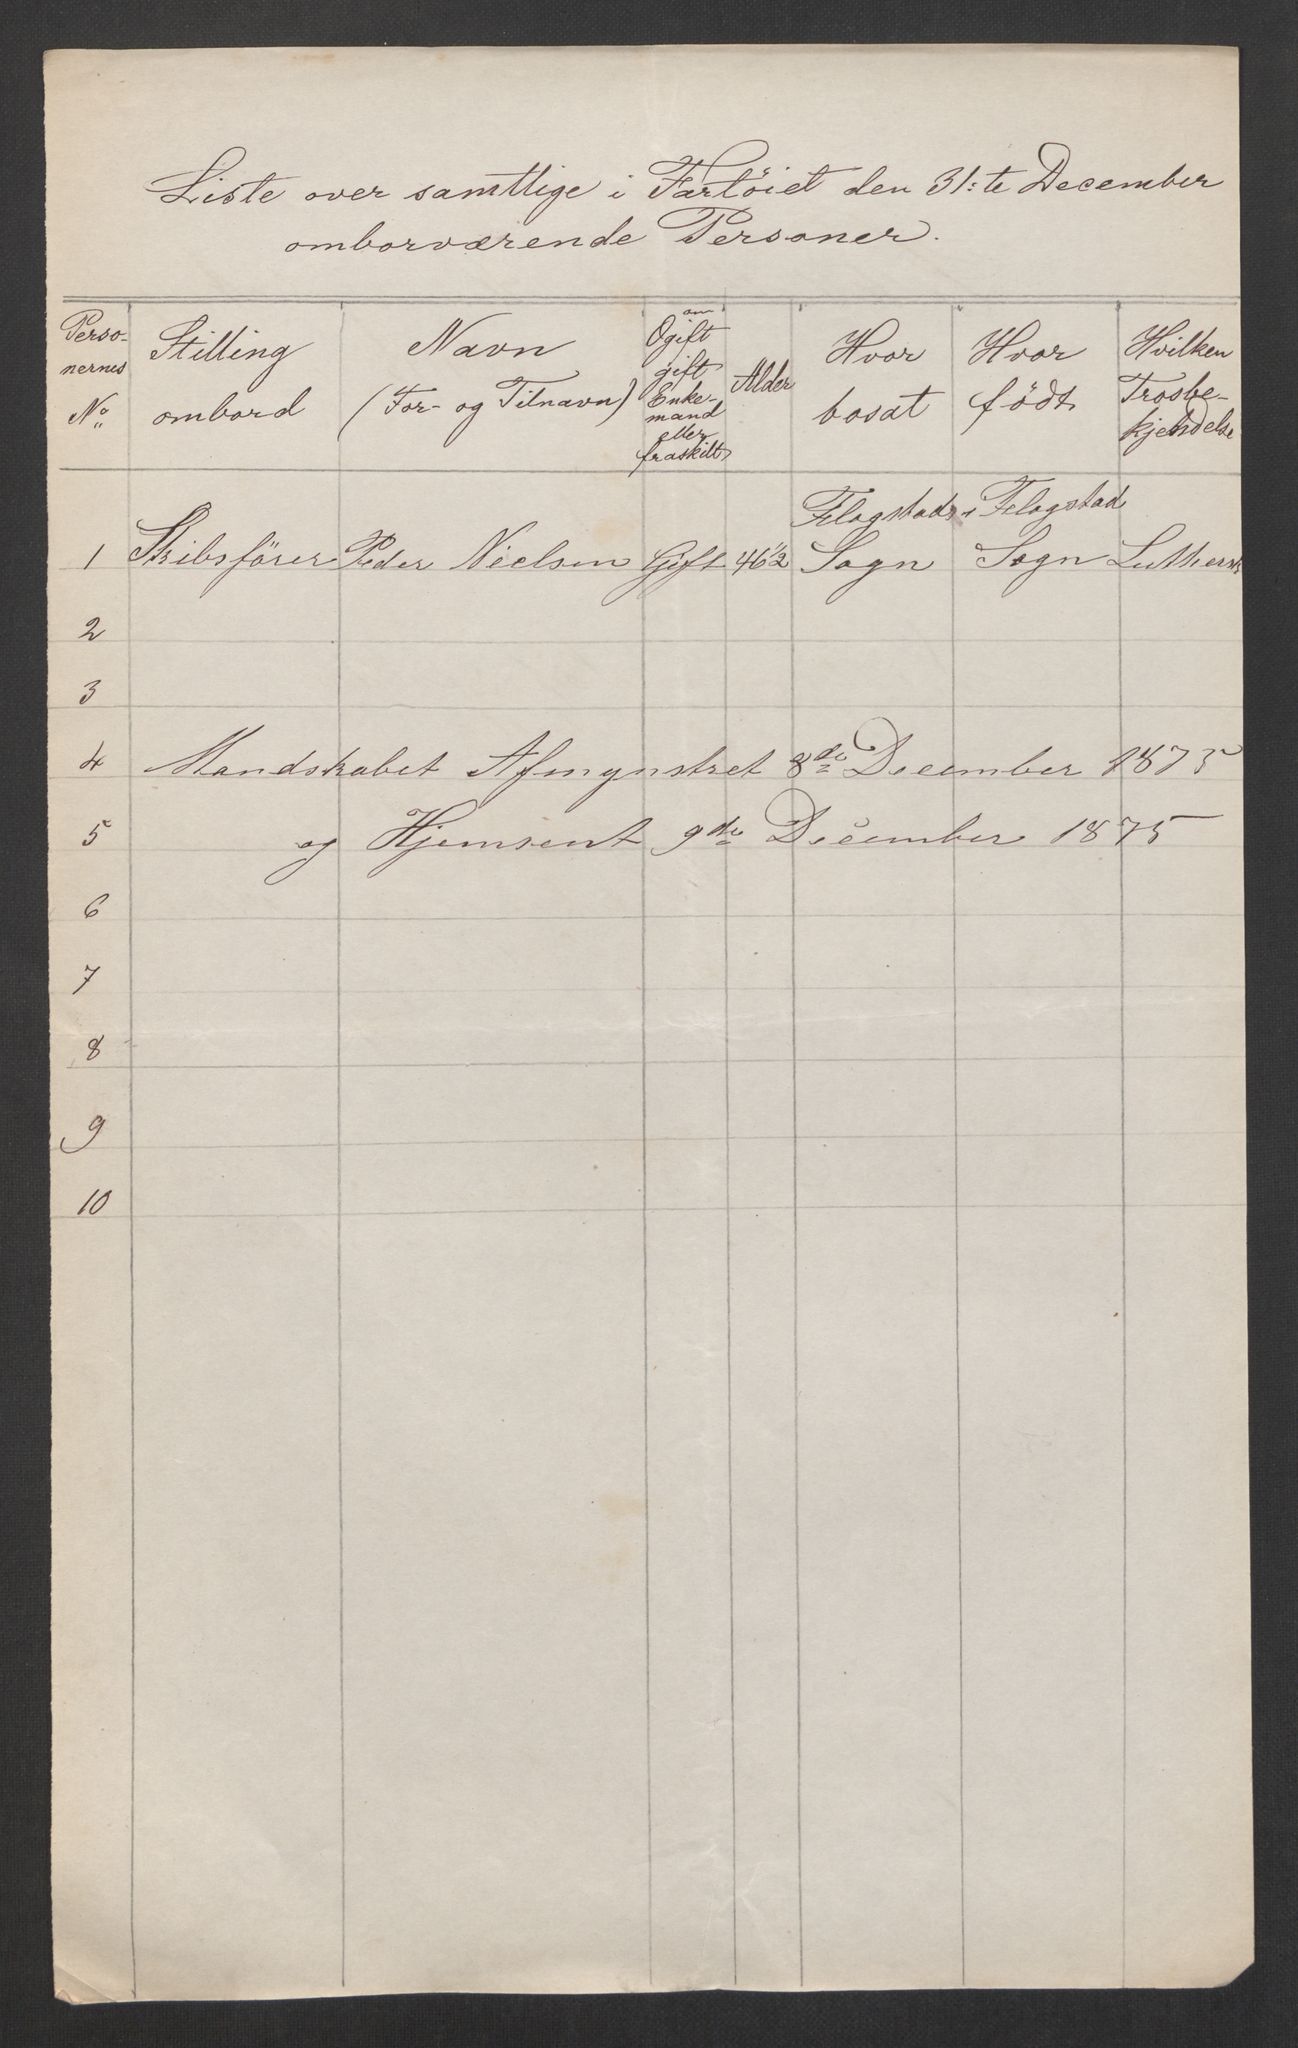 Liste over samtlige i Fartöiet den 31:te December
omborværende Personer.
Perso-
nernes
No
Stilling
ombord
Navn
(For- og Tilnavn)
om
Ogift
gift
Enke-
mand
eller
fraskilt
Alder
Hvor
bosat
Hvor
födt
Hvilken
Trosbe-
kjendelse
Flagstad Flagstad
1 Skibsförer Peder Nielsen Gift 46 1/2 Sogn Sogn Luthersk
2
3
4 Mandskabet Afmynstret 8de December 1875
5 og Hjemsent 9de December 1875
6
7
8
9
10